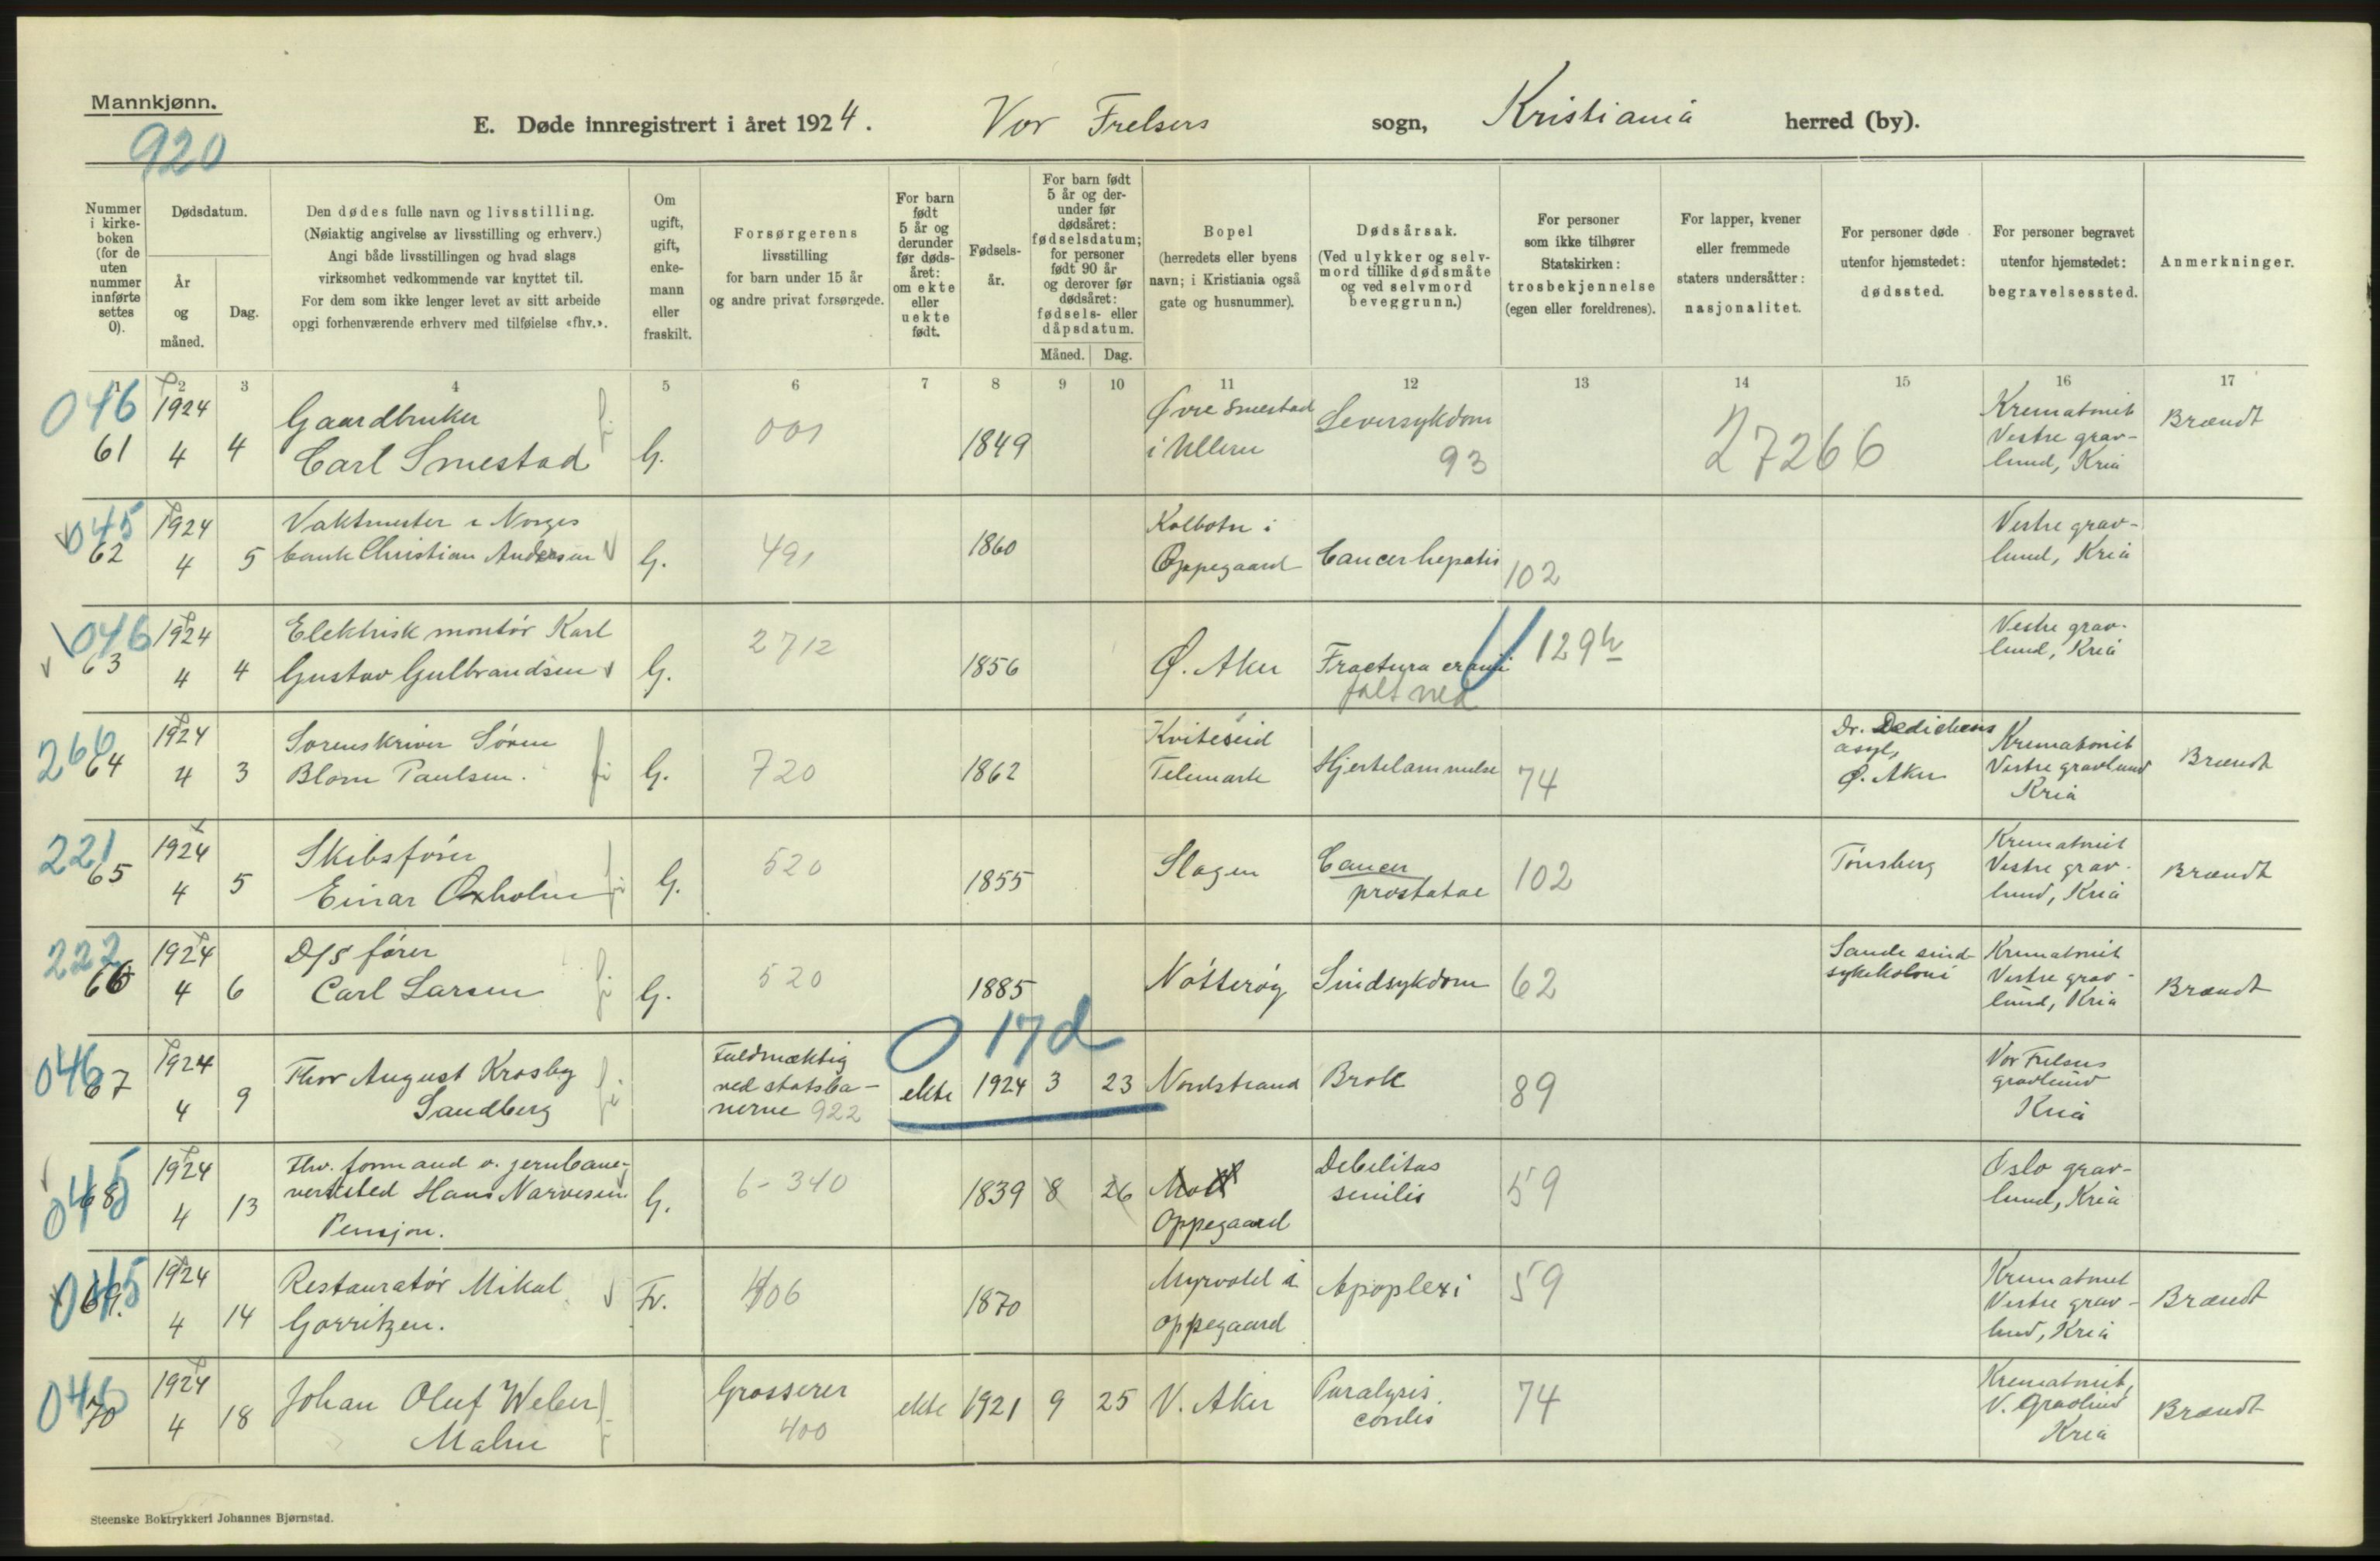 Mannkjønn.
920
E. Døde innregistrert i året 1924. Vor Frelsers sogn, Kristiania herred (by).
Nummer i kirke-boken (for de uten nummer innførte settes 0).
Dødsdatum.
År og måned.
Dag.
Den dødes fulle navn og livsstilling.
(Nøiaktig angivelse av livsstilling og erhverv.)
Angi både livsstillingen og hvad slags
virksomhet vedkommende var knyttet til.
For dem som ikke lenger levet av sitt arbeide
opgi forhenværende erhverv med tilføielse «fhv.».
Om ugift, gift, enke-mann eller fraskilt.
Forsørgerens
livsstilling
for barn under 15 år
og andre privat forsørgede.
For barn født 5 år og derunder før døds-året: om ekte eller uekte født.
Fødsels-år.
For barn født 5 år og der-under før dødsåret: fødselsdatum; for personer født 90 år og derover før dødsåret: fødsels- eller dåpsdatum.
Måned. Dag.
Bopel
(herredets eller byens
navn; i Kristiania også
gate og husnummer).
Dødsårsak.
(Ved ulykker og selv-
mord tillike dødsmåte
og ved selvmord
beveggrunn.)
For personer
som ikke tilhører
Statskirken:
trosbekjennelse
(egen eller foreldrenes).
For lapper, kvener
eller fremmede
staters undersåtter:
nasjonalitet.
For personer døde
utenfor hjemstedet:
dødssted.
For personer begravet
utenfor hjemstedet:
begravelsessted.
Anmerkninger.
1 2 3 4 5 6 7 8 9 10 11 12 13 14 15 16 17
046 61 1924 4 4 Gaardbruker
Carl Smestad G. 001 1849 Øvre Smestad
i Ullern Leversykdom
93 27266 Krematoriet
Vestre grav-
lund, Kria Brændt
045 62 1924 4 5 Vaktmester i Norges
bank Christian Andersen G. 491 1860 Kolbotn i
Oppegaard Cancer hepatis 102 Vestre grav-
lund, Kria
046 63 1924 4 4 Elektrisk montør Karl
Gustav Gulbrandsen G. 2712 1856 Ø. Aker Fractura cranii
falt ned 129 Vestre grav-
lund, Kria
266 64 1924 4 3 Sorenskriver Søren
Blom Paulsen. G. 720 1862 Kviteseid
Telemark Hjertelammelse 74 Dr. Dedichens
asyl,
Ø. Aker Krematoriet
Vestre gravlund
Kria Brændt
221 65 1924 4 5 Skibsfører
Einar Oxholm G. 520 1855 Slagen Cancer
prostatae 102 Tønsberg Krematoriet
Vestre grav-
lund, Kria Brændt
222 66 1924 4 6 D/S fører
Carl Larsen G. 520 1885 Nøtterøy Sindsykdom 62 Sande sind-
sykekoloni Krematoriet
Vestre grav-
lund, Kria Brændt
046 67 1924 4 9 Thor August Krosby
Sandberg Fuldmæktig
ved statsba-
nerne 922 017d
ekte 1924 3 23 Nordstrand Brok 89 Vor Frelsers
gravlund
Kria
045 68 1924 4 13 Fhv. formand v. jernbane-
verksted Hans Narvesen
Pensjon. G. 6-340 1839 8 26
Oppegaard Debilitas
senilis 59 Oslo grav-
lund, Kria
045 69. 1924 4 14 Restauratør Mikal
Gorritzen. Fr. 406 1870 Myrvold i
Oppegaard Apoplexi 59 Krematoriet
Vestre grav-
lund, Kria Brændt
046 70 1924 4 18 Johan Oluf Weber
Malm Grosserer
400 ekte 1921 9 25 V. Aker Paralysis
cordis 74 Krematoriet,
V. Gravlund
Kria Brændt
Steenske Boktrykkeri Johannes Bjørnstad.